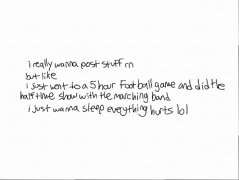 i really wanna post stuff rn
but like
i just went to a 5 hour football game and did the
halftime show with the marching band
i just wanna sleep everything hurts lol